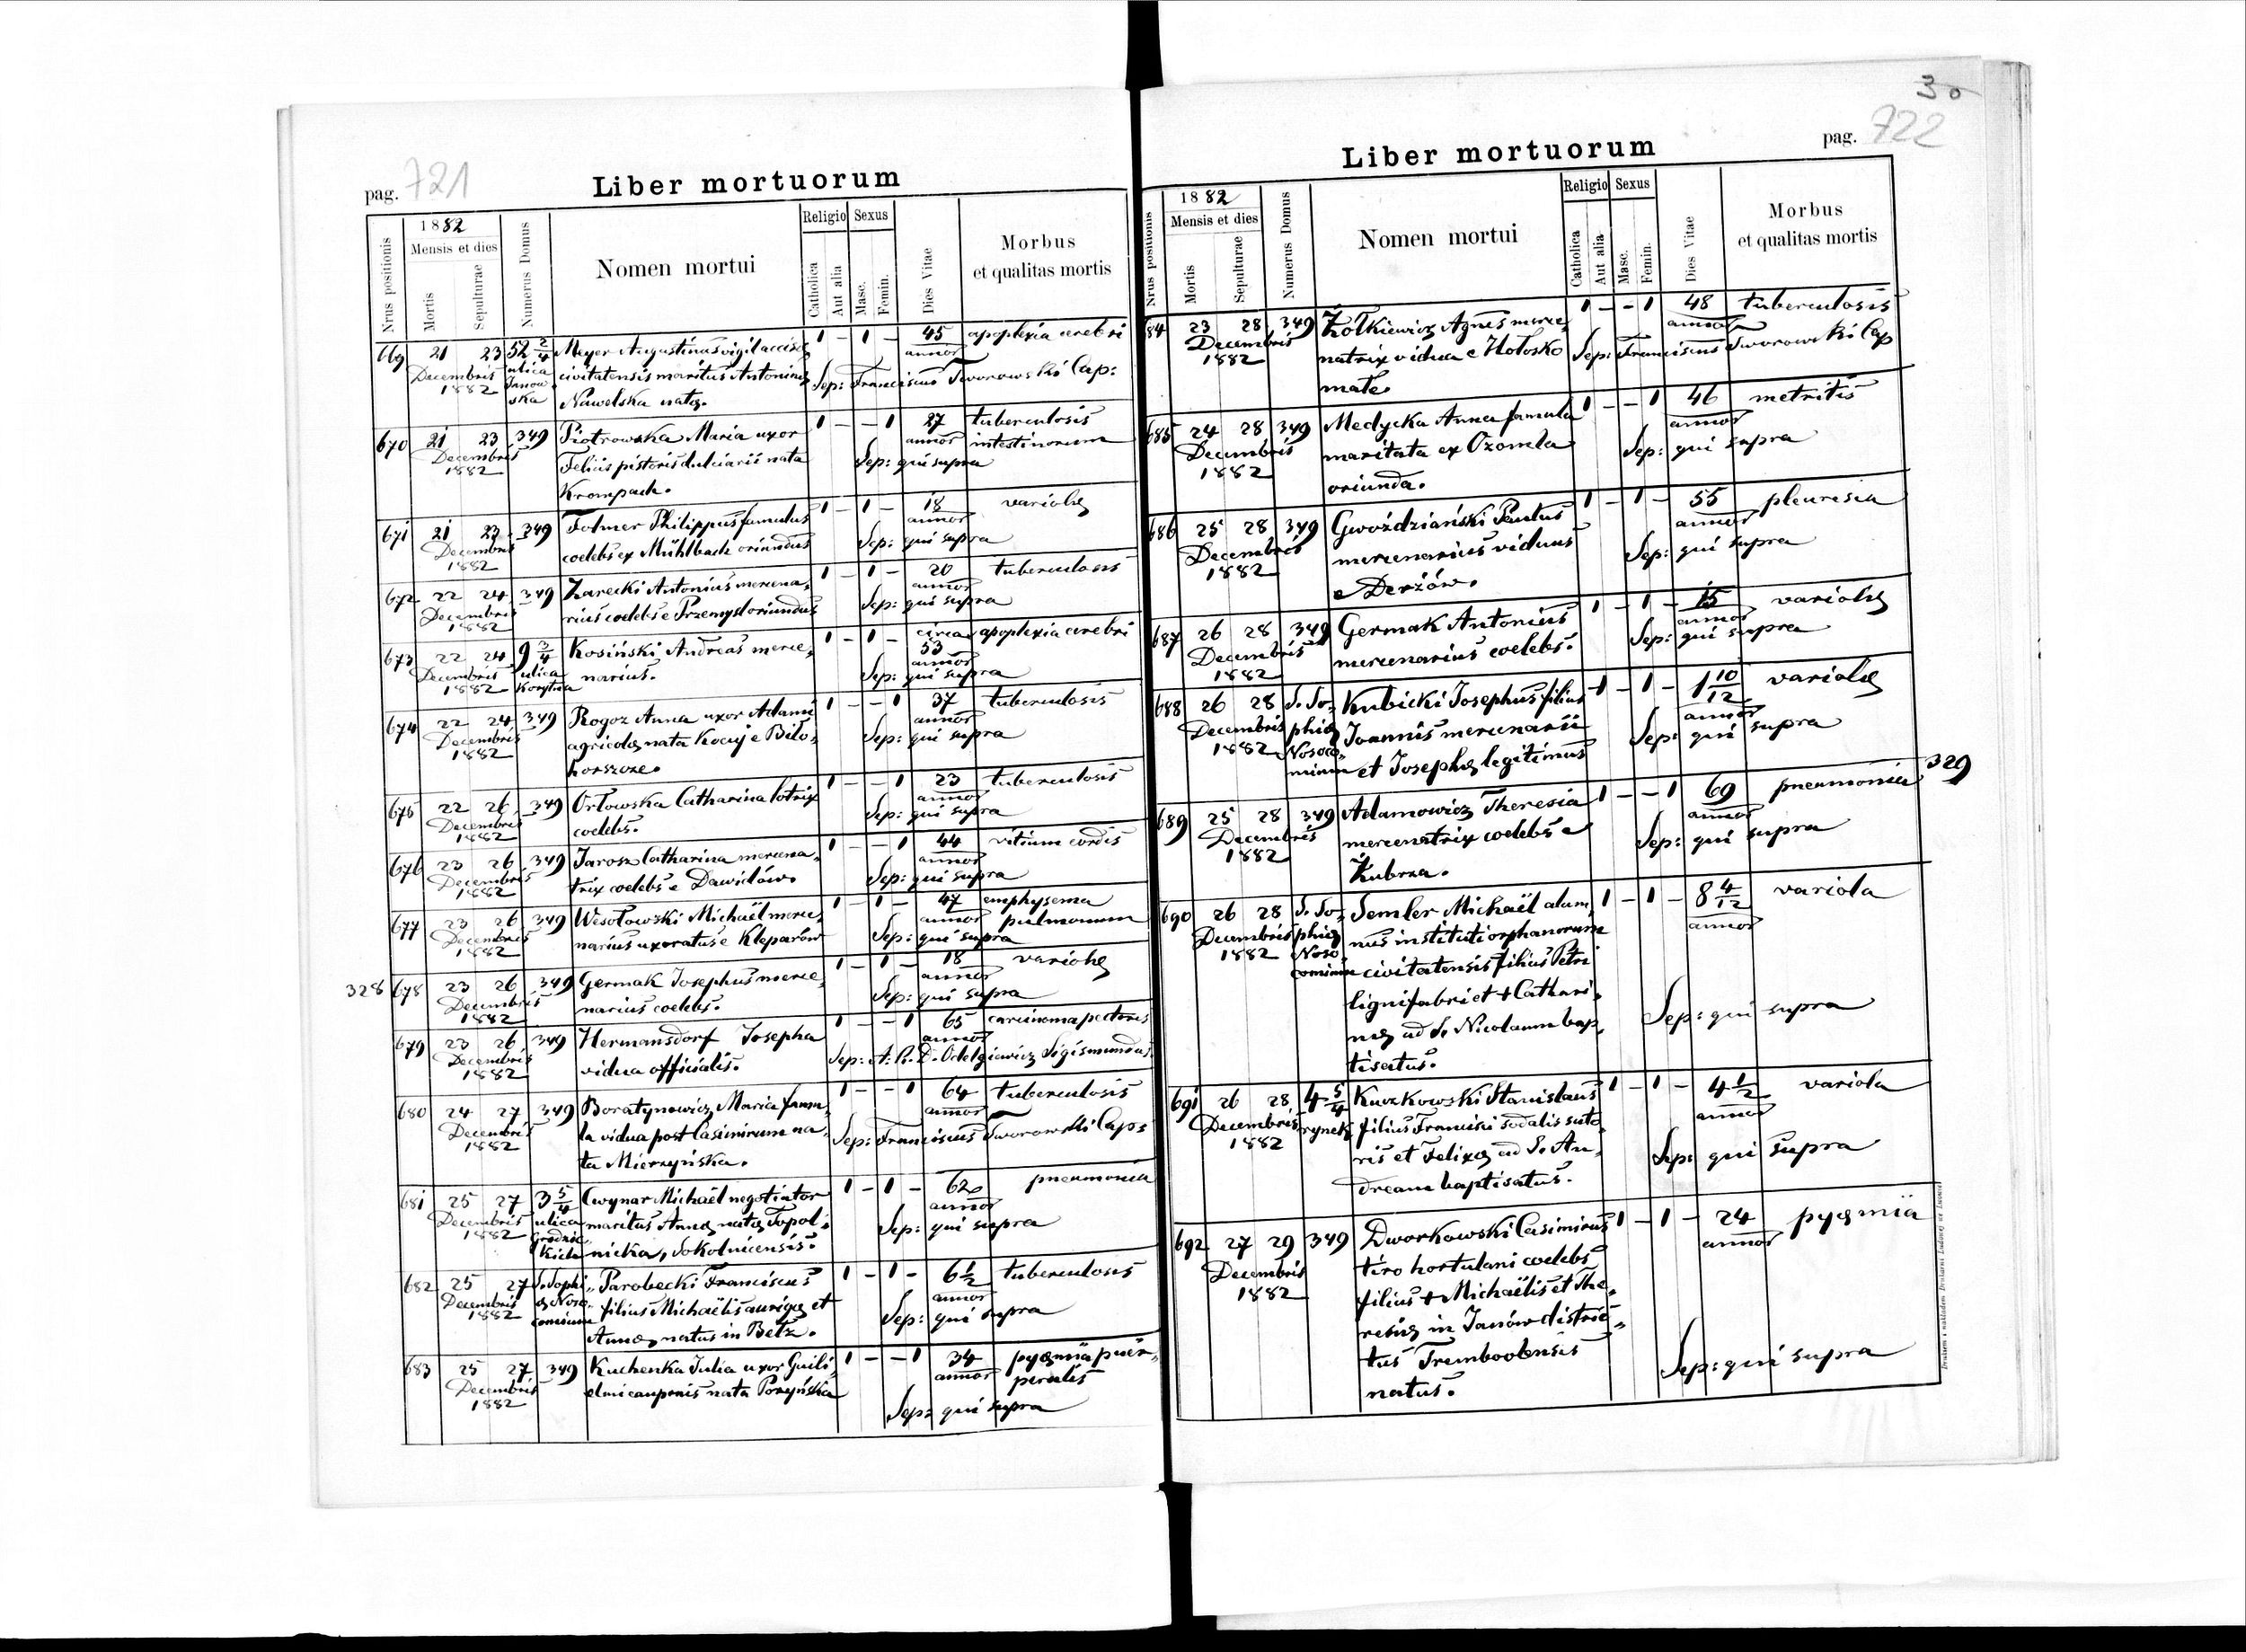 pag. 721
Liber mortuorum
Nrus positionis
1882
Mensis et dies
Mortis
Sepulturae
Numerus Domus
Nomen mortui
Religio
Catholica
Aut alia
Sexus
Masc.
Femin.
Dies Vitae
Morbus
et qualitas mortis
669 21 23 52 2/4 Meyer Augustinus vigil accisae 1 - 1 - 45 apoplexia cerebri
Decembris ulica civitatensis maritus Antoninae annor
1882 Janowska Nawelska natae. Sep: Franciscus Tworowski Cap:
670 21 23 349 Piotrowska Maria uxor 1 - - 1 27 tuberculosis
Decembris Felicis pistoris dulciarii nata annor intestinorum
1882 Krompach. Sep: qui supra
671 21 23 349 Folmer Philippus famulus 1 - 1 - 18 variolae
Decembris coelebs ex Mühlbach oriundus annor
1882 Sep: qui supra
672 22 24 349 Zarecki Antonius mercena, 1 - 1 - 20 tuberculosis
Decembris rius coelebs e Przemysl oriundus annor
1882 Sep: qui supra
673 22 24 9 3/4 Kosiński Andreas merce, 1 - 1 - circa 53 apoplexia cerebri
Decembris ulica narius. annor
1882 Korytna Sep: qui supra
674 22 24 349 Rogoz Anna uxor Adami 1 - - 1 37 tuberculosis
Decembris agricolae nata Kocuj e Biło, annor
1882 horszcze. Sep: qui supra
675 22 26 349 Orłowska Catharina lotrix 1 - - 1 23 tuberculosis
Decembris coelebs. annor
1882 Sep: qui supra
676 23 26 349 Jarosz Catharina mercena, 1 - - 1 44 vitium cordis
Decembris trix coelebs e Dawidów. annor
1882 Sep: qui supra
677 23 26 349 Wesołowski Michaël merce, 1 - 1 - 47 emphysema
Decembris narius uxoratus e Kleparów annor pulmonum
1882 Sep: qui supra
328 678 23 26 349 Germak Josephus merce, 1 - 1 - 18 variolae
Decembris narius coelebs. annor
1882 Sep: qui supra
679 23 26 349 Hermansdorf Josepha 1 - - 1 65 carcinoma pectoris
Decembris vidua officialis. annor
1882 Sep: A. R. D. Odelgiewicz Sigismundus.
680 24 27 349 Boratynowicz Maria famu, 1 - - 1 64 tuberculosis
Decembris la vidua post Casimirum na, annor
1882 ta Mierzyńska. Sep: Franciscus Tworowski Cap:
681 25 27 3 5/4 Cwynar Michaël negotiator 1 - 1 - 62 pneumonia
Decembris ulica maritus Annae natae Topol, annor
1882 Grodzic, kich nicka, Sokolnicensis. Sep: qui supra
682 25 27 S. Sophi, Parobecki Franciscus 1 - 1 - 6 1/2 tuberculosis
Decembris ae Noso, filius Michaëlis aurigae et annor
1882 comium Annae, natus in Betz. Sep: qui supra
683 25 27 349 Kuchenka Julia uxor Guili, 1 - - 1 34 pyaemia puer,
Decembris elmi cauponis nata Pozyńska annor peralis
1882 Sep: qui supra
30
pag. 722
Liber mortuorum
Nrus positionis
1882
Mensis et dies
Mortis
Sepulturae
Numerus Domus
Nomen mortui
Religio
Catholica
Aut alia
Sexus
Masc.
Femin.
Dies Vitae
Morbus
et qualitas mortis
84 23 28 349 Żołkiewicz Agnes merce, 1 - - 1 48 tuberculosis
Decembris natrix vidua e Hołosko annor
1882 małe. Sep: Franciscus Tworowski Cap
685 24 28 349 Medycka Anna famula 1 - - 1 46 metritis
Decembris maritata ex Ozomla annor
1882 oriunda. Sep: qui supra
686 25 28 349 Gwoździański Paulus 1 - 1 - 55 pleuresia
Decembris mercenarius viduus annor
1882 e Derżów. Sep: qui supra
687 26 28 349 Germak Antonius 1 - 1 - 15 variolae
Decembris mercenarius coelebs. annor
1882 Sep: qui supra
688 26 28 S. So, Kubicki Josephus filius 1 - 1 - 1 10/12 variolae
Decembris phiae Joannis mercenarii annor
1882 Nosoco, mium et Josephae legitimus Sep: qui supra
329
689 25 28 349 Adamowicz Theresia 1 - - 1 69 pneumonia
Decembris mercenatrix coelebs e annor
1882 Kubrza. Sep: qui supra
690 26 28 S. So, Semler Michaël alum, 1 - 1 - 8 4/12 variola
Decembris phiae nus instituti orphanorum annor
1882 Noso, comium civitatensis filius Petri
lignifabri et + Cathari,
nae ad S. Nicolaum bap, Sep: qui supra
tisatus.
691 26 28 4 5/4 Kuczkowski Stanislaus 1 - 1 - 4 1/2 variola
Decembris rynek filius Francisci sodalis suto, annor
1882 ris et Felixae ad S. An, Sep: qui supra
dream baptisatus.
692 27 29 349 Dworkowski Casimirus 1 - 1 - 24 pyaemia
Decembris tiro hortulani coelebs annor
1882 filius + Michaëlis et The,
resiae in Janów distric,
tus Trembovlensis Sep: qui supra
natus.
Drukiem i nakładem Drukarni Ludowej we Lwowie